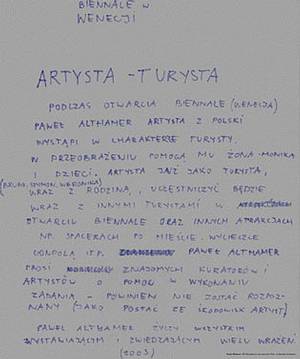 BIENNALE W
WENECJI
ARTYSTA - TURYSTA
PODCZAS OTWARCIA BIENNALE (WENECJA)
PAWEŁ ALTHAMER ARTYSTA Z POLSKI
WYSTĄPI W CHARAKTERZE TURYSTY.
W PRZEOBRAŻENIU POMOGĄ MU ŻONA - MONIKA
I DZIECI. ARTYSTA JAŻ JAKO TURYSTA,
(BRUNO, SZYMON, WERONIKA)
WRAZ Z RODZINĄ, UCZESTNICZYĆ BĘDZIE
WRAZ Z INNYMI TURYSTAMI W
OTWARCIU BIENNALE ORAZ INNYCH ATRAKCJACH
NP. SPACERACH PO MIEŚCIE, WYCIECZCE
GONDOLĄ ITP. PAWEŁ ALTHAMER
PROSI ZNAJOMYCH KURATORÓW I
ARTYSTÓW O POMOC W WYKONANIU
ZADANIA - POWINIEN NIE ZOSTAĆ ROZPOZ-
NANY (JAKO POSTAĆ ZE ŚRODOWISK ARTYST)
PAWEŁ ALTHAMER ŻYCZY WSZYSTKIM
WYSTAWIAJĄCYM I ZWIEDZAJĄCYM WIELU WRAŻEŃ
(2003)